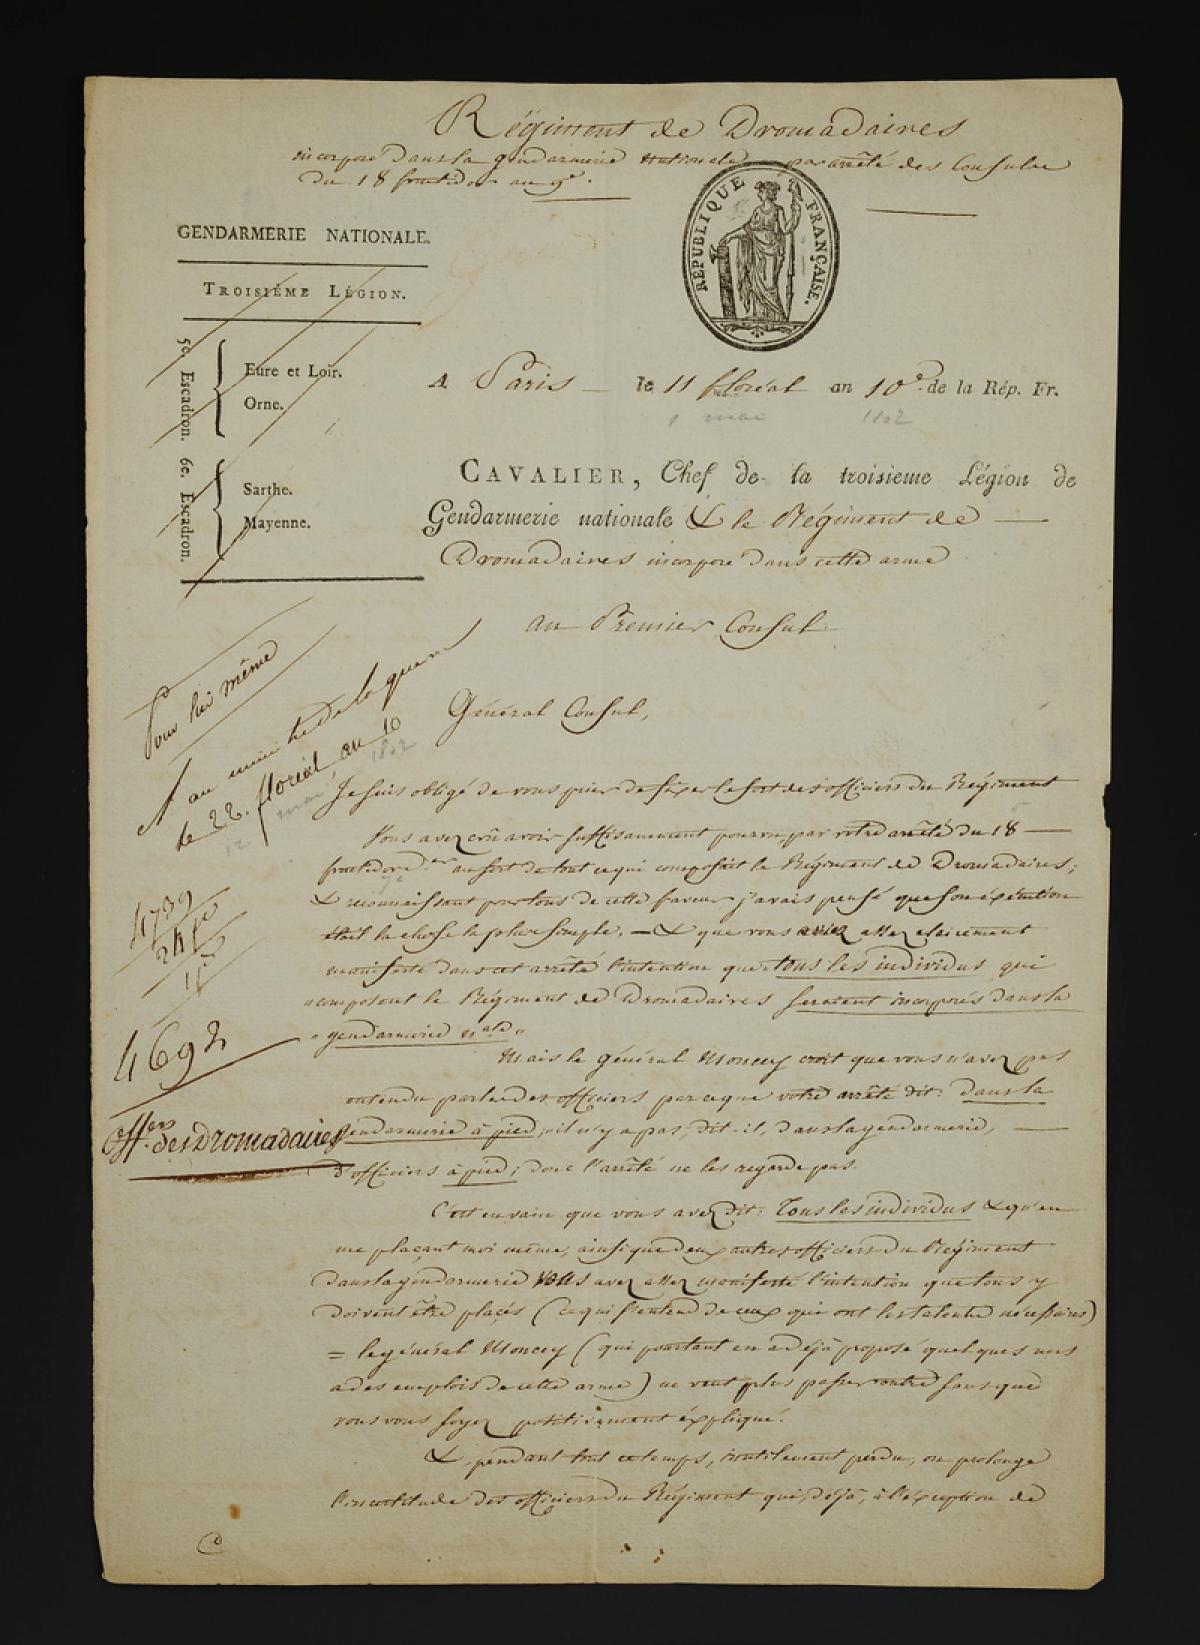 Régiment de Dromadaires
incorporé dans la gendarmerie nationale par arrêté des Consuls
du 18 fructidor an 9e.
RÉPUBLIQUE FRANÇAISE.
GENDARMERIE NATIONALE.
TROISIÉME LÉGION.
5e. Escadron.
Eure et Loir.
Orne.
6e. Escadron.
Sarthe.
Mayenne.
A Paris — le 11 floréal an 10e. de la Rép. Fr.
1 mai 1802
CAVALIER, Chef de la troisieme Légion de
Gendarmerie nationale & le Régiment de —
Dromadaires incorporé dans cette arme
au Premier Consul.
Pour lui même
au ministre de la guerre
le 22. floréal, an 10
12 mai 1802
Général Consul,
Je suis obligé de vous prier de fixer le sort des officiers du Régiment
Vous avez crû avoir suffisamment pourvu, par votre arrêté du 18 —
fructidor der au sort de tout ce qui composait le Régiment de Dromadaires;
& reconnaissant pour tous de cette faveur j'avais pensé que son éxécution
était la chose la plus simple. — & que vous aviez assez clairement
manifesté dans cet arrêté l'intention que tous les individus qui
"composent le Régiment de Dromadaires seraient incorporés dans la
"gendarmerie nale"
Mais le général Moncey croit que vous n'avez pas
entendu parler des officiers parceque votre arrêté dit: dans la
gendarmerie à pied, il n'y a pas, dit-il, dans la gendarmerie, —
d'officiers à pied; donc l'arrêté ne les regarde pas.
C'est en vain que vous avez dit: Tous les individus & qu'en
me plaçant moi même, ainsi que deux autres officiers du Régiment
dans la gendarmerie vous avez assez manifesté l'intention que tous y
doivent être placés (ce qui s'entend de ceux qui ont les talents nécessaires)
= le général Moncey (qui pourtant en a déjà proposé quelques uns
à des emplois de cette arme) ne veut plus passer outre sans que
vous vous soyez positivement éxpliqué.
&, pendant tout ce temps, inutilement perdu, on prolonge
l'incertitude des officiers du Régiment qui, déjà, à l'éxception de
4739
4692
Offers des Dromadaires